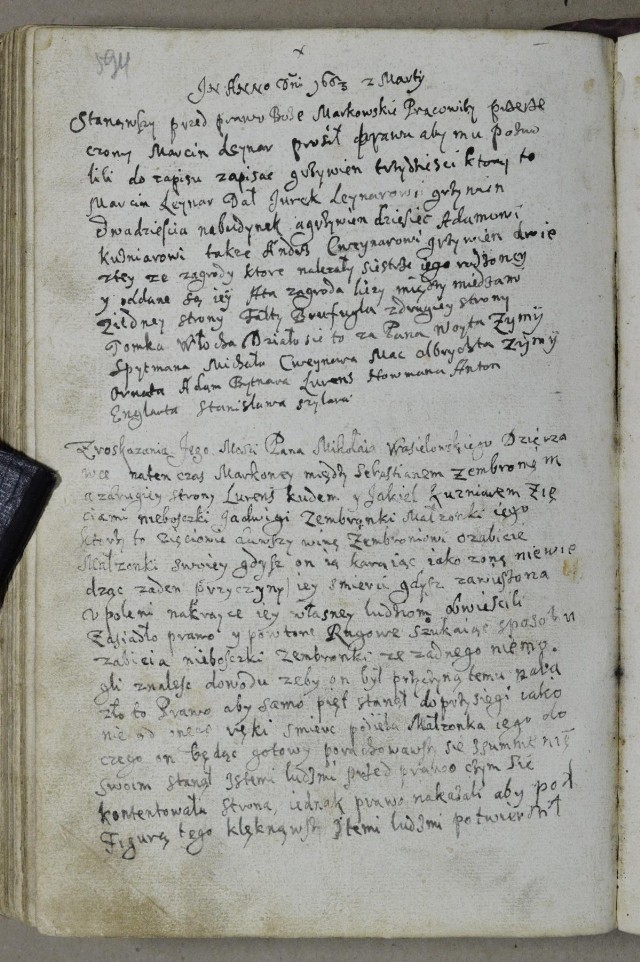 594
x
IN ANNO Dni 1663 2 Marty
Stanąwszy przed prawo Boże Markowskie Pracowity
czony Marcin Leynar prosił prawa aby mu pozwo
lili do zapisu zapisać grzywien trzydzieści ktory to
Marcin Leynar Dał Jurek Leynarowi grzywien
Dwadzieścia nabudynek agrzywien dziesięć Adamowi
kuśniarowi także Andrs Cweynarowi grzywien dwie
ztey ze zagrody ktore należały siestrze iego rodzoney
y oddane są iey Ata zagroda leży między miedzami
ziedney strony Falty Braufugla zdrugiey strony
Tomka Włocha Działo sie to za Pana woyta Zymy
Spytmana Michała Cweynowa Mac Olbrychta Zymy
Ornata Adam Bytnara Lurens Nowmana Anton
Englarta Stanisława szylara
Zroskazania Jego Mści Pana Mikołaia Wasielowskiego Dzierza
wce naten czas Markowey między Sebastianem Zembroniem
azdrugiey strony Lurens kudem y Jakiel kuzniarem Zię
ciami nieboszki Jadwigi Zembronki Małżonki iego
ktorzy to zięciowie dawszy winę Zembroniowi ozabicie
Małżonki swoiey gdysz on ią karaiąc iako żonę niewie
dząc żaden przyczyny iey śmierci gdysz
wpoleni nakrayce iey własney ludziom obwieścili
Zasiadło prawo y powtore Rugowe szukaiąc sposobu
zabicia nieboszki Zembronki ze żadnego niemo
gli znalesc dowodu żeby on był przyczyną temu naka
zło to Prawo aby samo pięt stanął do przysięgi iako
nie od onego ręki śmierć podięła Małżonka iego do
czego on będąc gotowy porachowawszy się zsumnienię
swoim stanął ztemi ludzmi przed prawo czym sie
kontentowała strona, iednak prawo nakazali aby pod
Figurę tego klęknąwszy ztemi ludzmi potwierdził